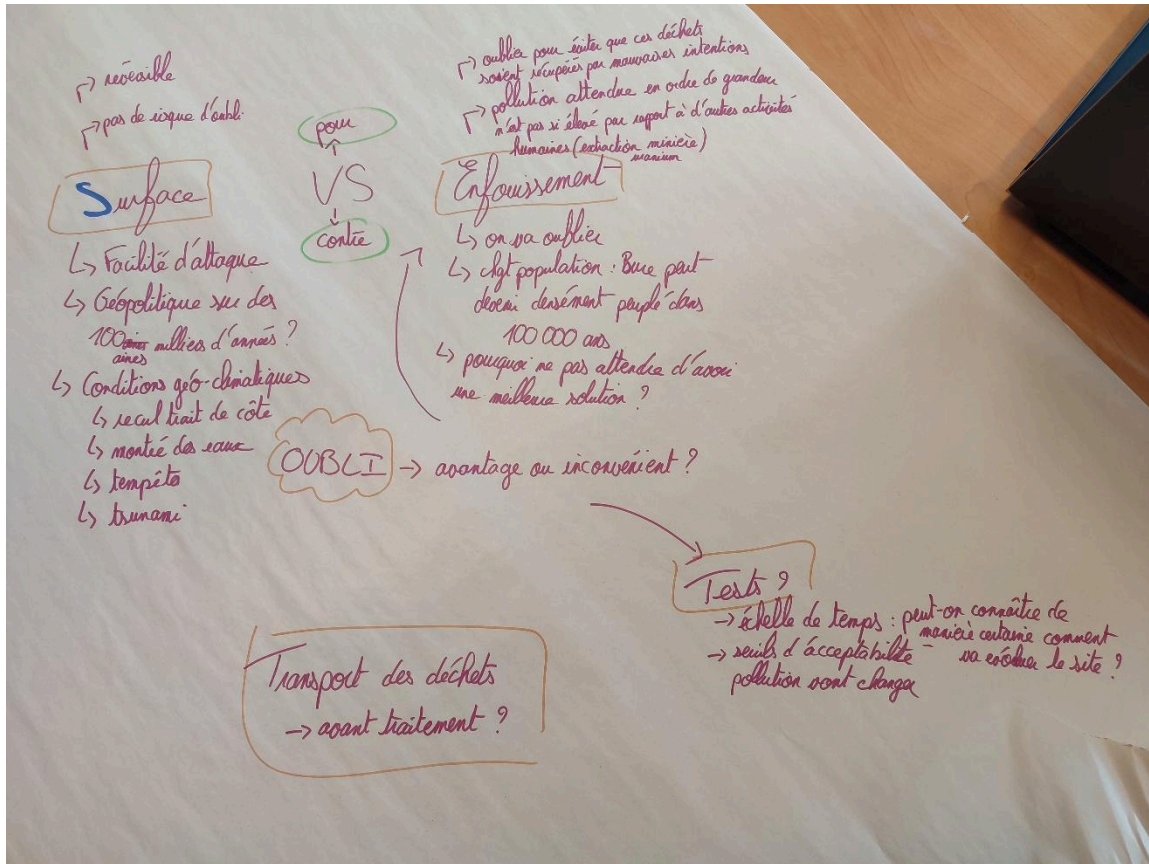 réversible
pas de risque d'oubli
Surface
Facilité d'attaque
Géopolitique sur des
100 milliers d'années ?
aines
Conditions géo-climatiques
recul trait de côte
montée des eaux
tempête
tsunami
pour
VS
contre
oublier pour éviter que ces déchets
soient récupérés par mauvaises intentions
pollution attendue en ordre de grandeur
n'est pas si élevé par rapport à d'autres activités
humaines (extraction minière)
uranium
Enfouissement
on va oublier
chgt population : Bure peut
devenir densément peuplé dans
100 000 ans
pourquoi ne pas attendre d'avoir
une meilleure solution ?
OUBLI → avantage ou inconvénient ?
Tests ?
→ échelle de temps : peut-on connaître de
manière certaine comment
va évoluer le site ?
→ seuils d'acceptabilité
pollution vont changer
Transport des déchets
→ avant traitement ?